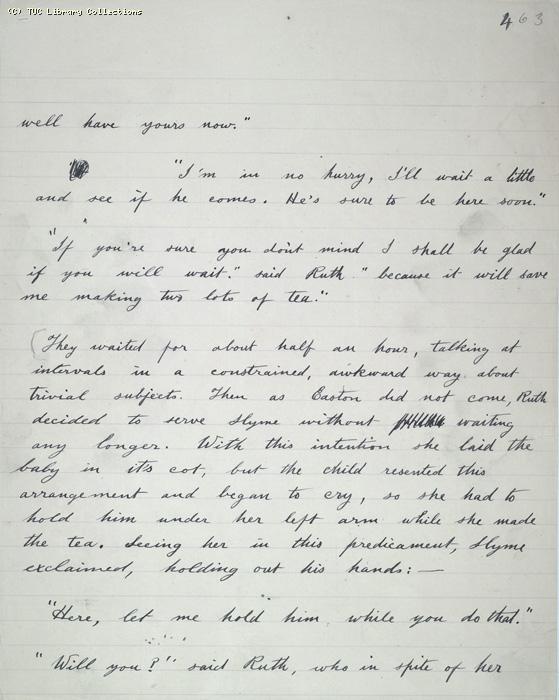 (C) TUC Library Collections
463
well have yours now."
"I'm in no hurry, I'll wait a little
and see if he comes. He's sure to be here soon."
"If you're sure you don't mind I shall be glad
if you will wait." said Ruth "because it will save
me making two lots of tea."
(They waited for about half an hour, talking at
intervals in a constrained, awkward way about
trivial subjects. Then as Easton did not come, Ruth
decided to serve Slyme without waiting
any longer. With this intention she laid the
baby in it's cot, but the child resented this
arrangement and began to cry, so she had to
hold him under her left arm while she made
the tea. Seeing her in this predicament, Slyme
exclaimed, holding out his hands: —
"Here, let me hold him while you do that."
"Will you?" said Ruth, who in spite of her